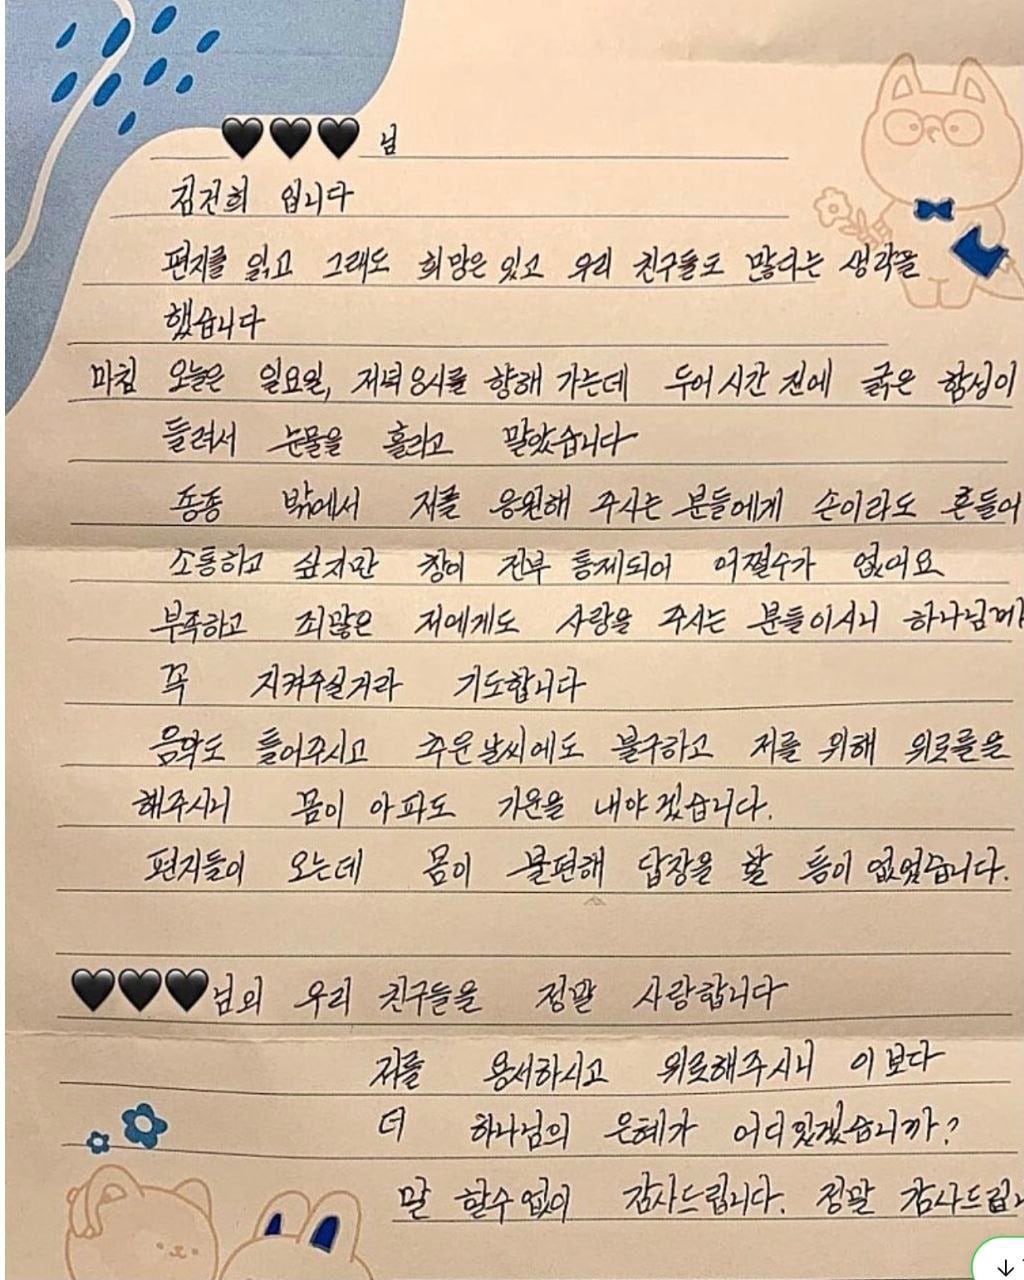 님
김건희 입니다
편지를 읽고 그래도 희망은 있고 우리 친구들도 많다라는 생각을
했습니다
마침 오늘은 일요일, 저녁 8시를 향해 가는데 두어시간 전에 굵은 함성이
들려서 눈물을 흘리고 말았습니다
종종 밖에서 저를 응원해 주시는 분들에게 손이라도 흔들어
소통하고 싶지만 창이 전부 통제되어 어쩔수가 없어요
부족하고 죄많은 저에게도 사랑을 주시는 분들이시니 하나님께
꼭 지켜주실거라 기도합니다
음악도 틀어주시고 추운날씨에도 불구하고 저를 위해 위로를을
해주시니 몸이 아파도 기운을 내야겠습니다.
편지들이 오는데 몸이 불편해 답장을 할 틈이 없었습니다.
님의 우리 친구들을 정말 사랑합니다
저를 용서하시고 위로해주시니 이보다
더 하나님의 은혜가 어디있겠습니까?
말 할수없이 감사드립니다. 정말 감사드립니